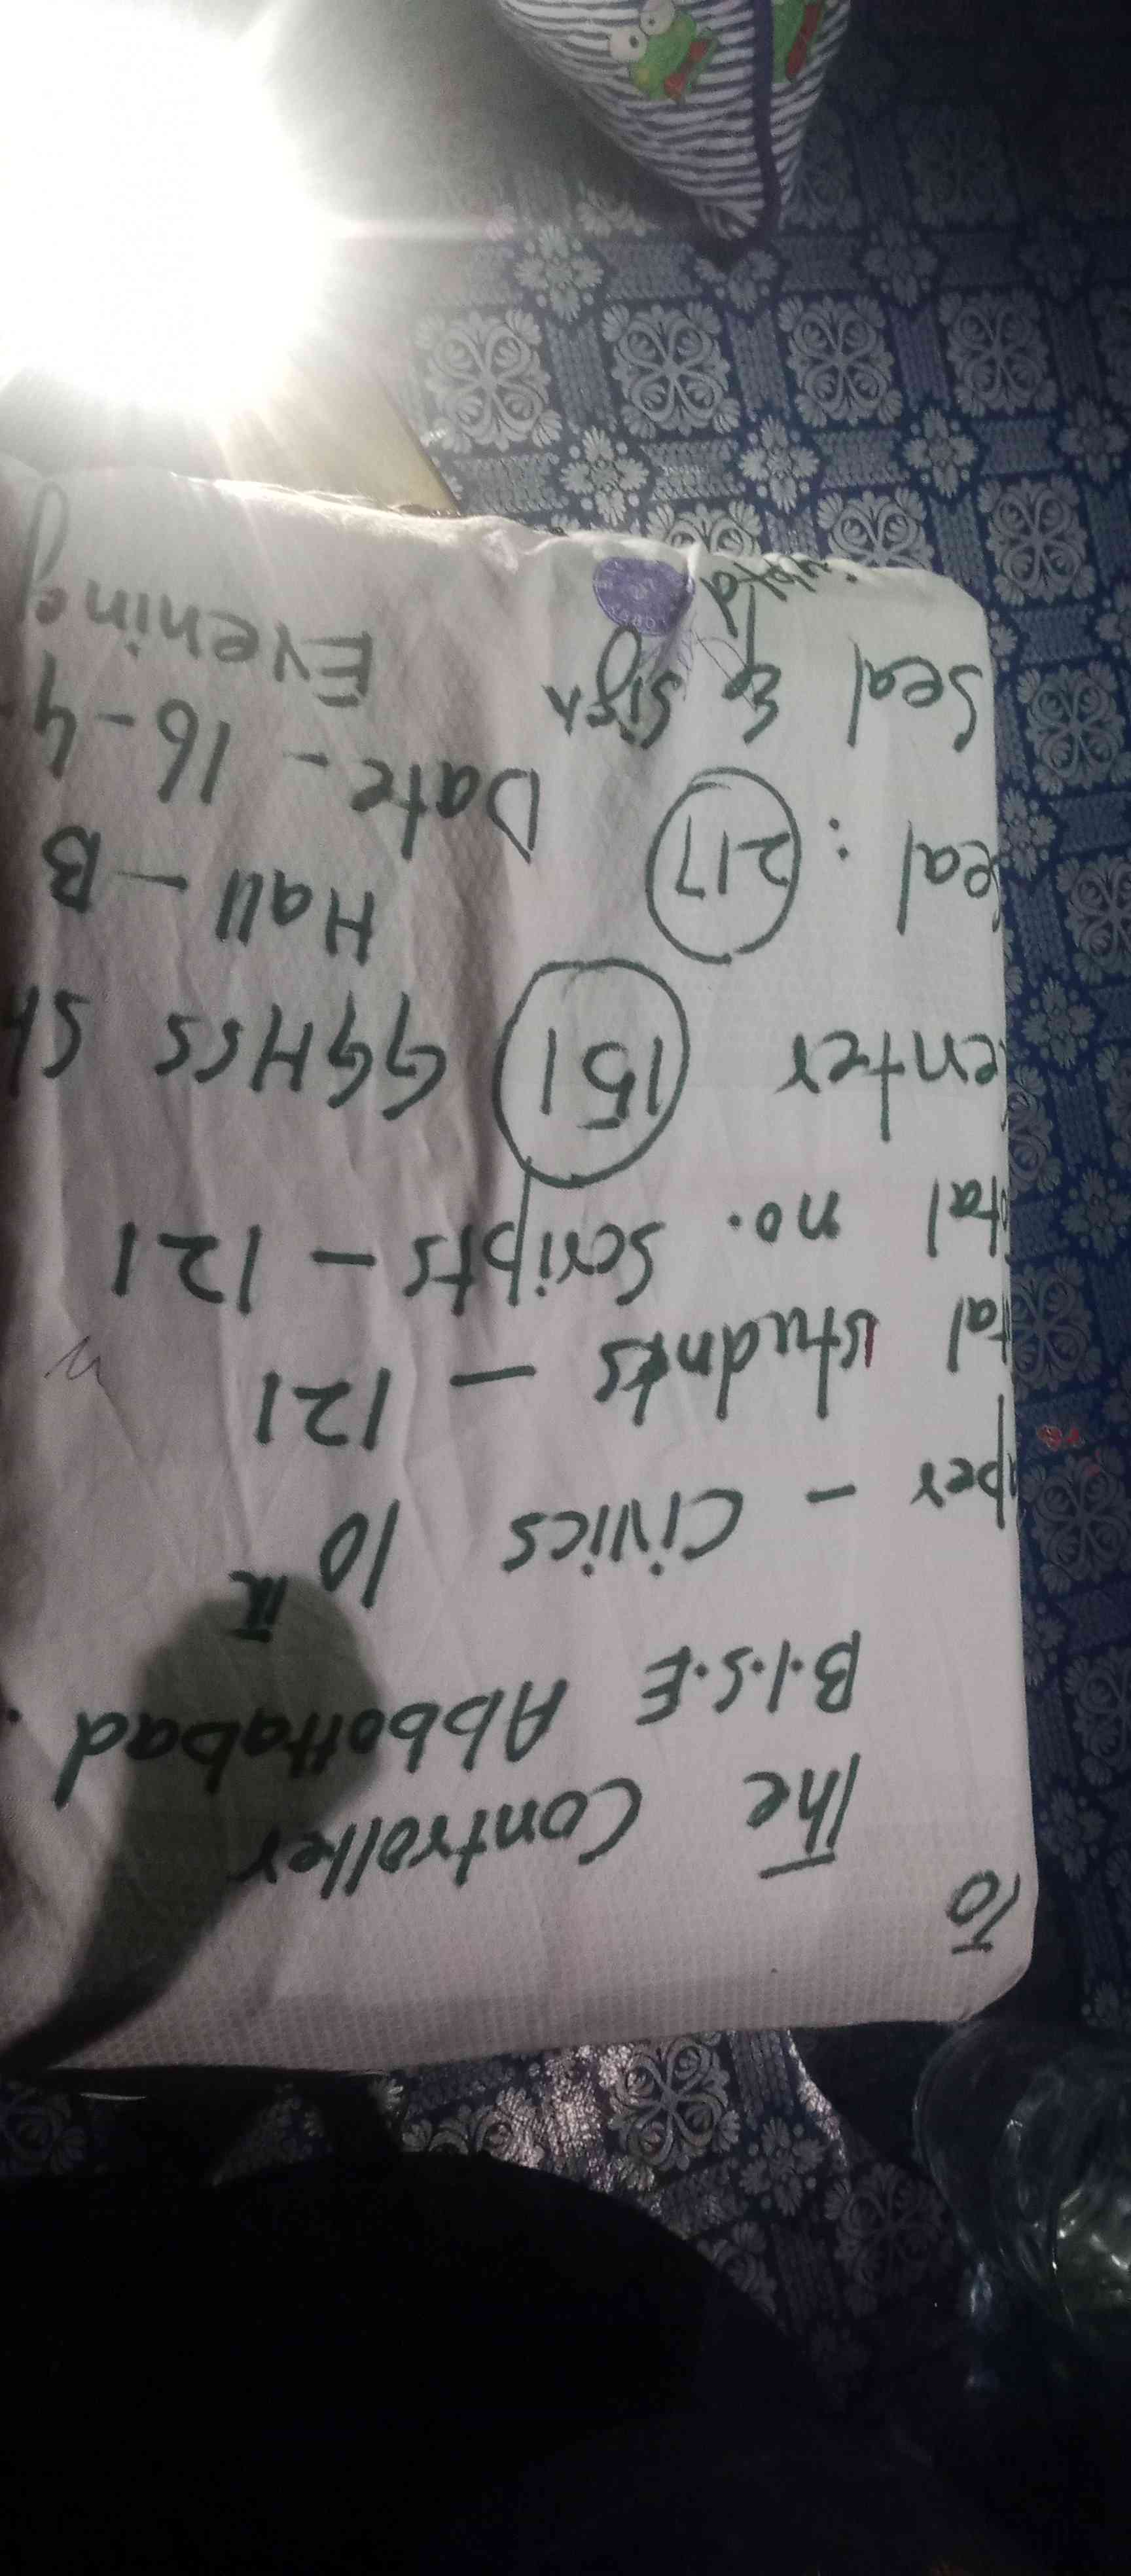 To
The Controller
B.I.S.E Abbottabad
aper - Civics 10 th
tal studnts - 121
otal no. Scripts - 121
enter 151 GGHSS Sh
Seal : 217 Hall - B
Date - 16-4
Seal & Sign Evening